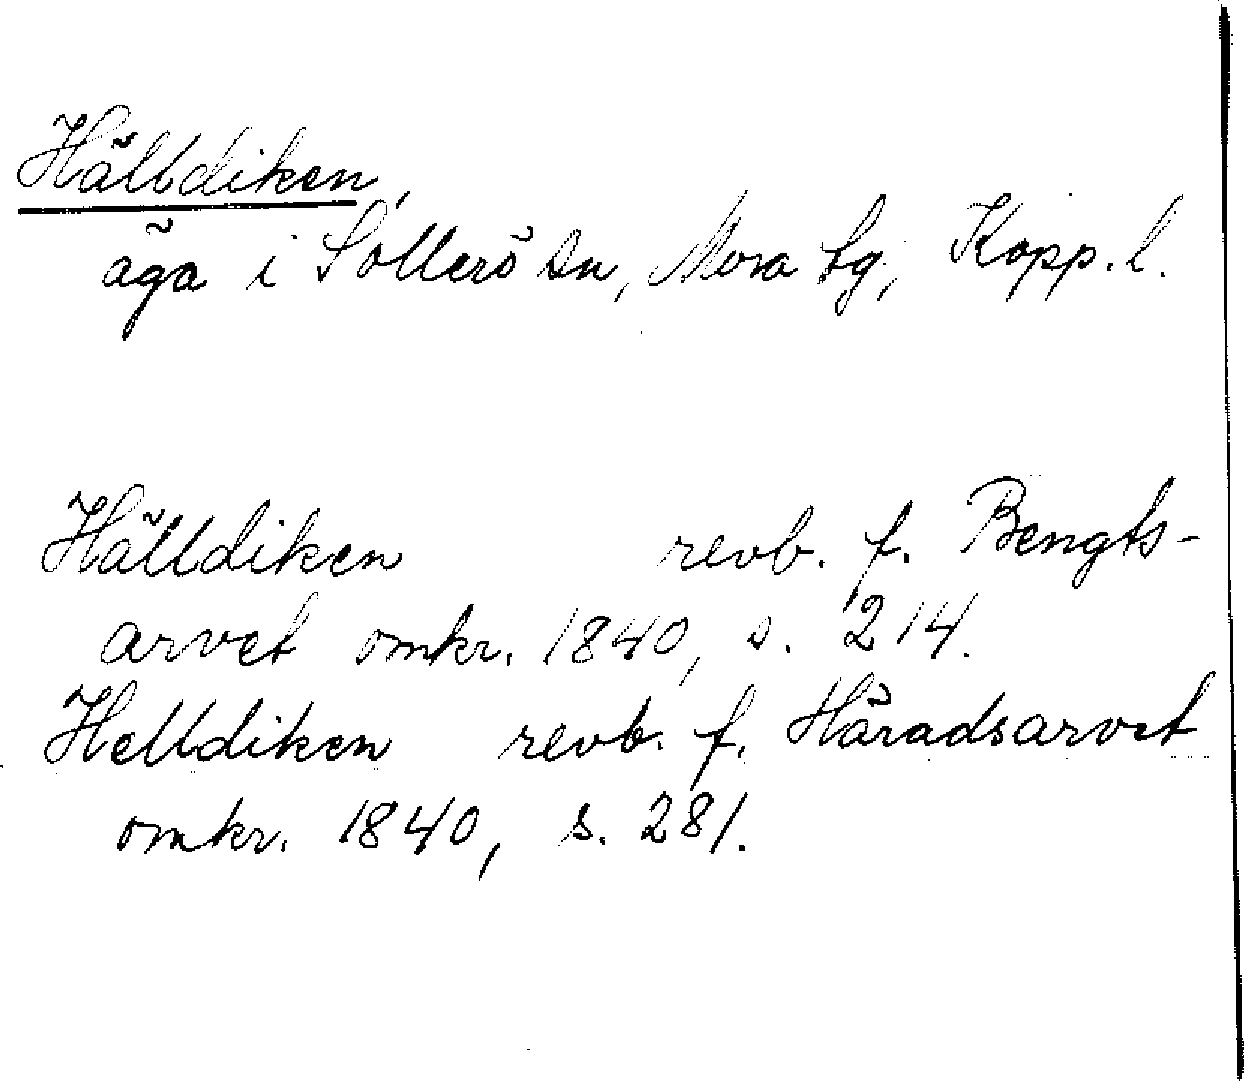 Hälldiken,
äga i Sollerö sn, Mora tg, Kopp. l.
Hälldiken revb. f. Bengts-
arvet omkr. 1840, s. 214.
Helldiken revb. f. Häradsarvet
omkr. 1840, s. 281.